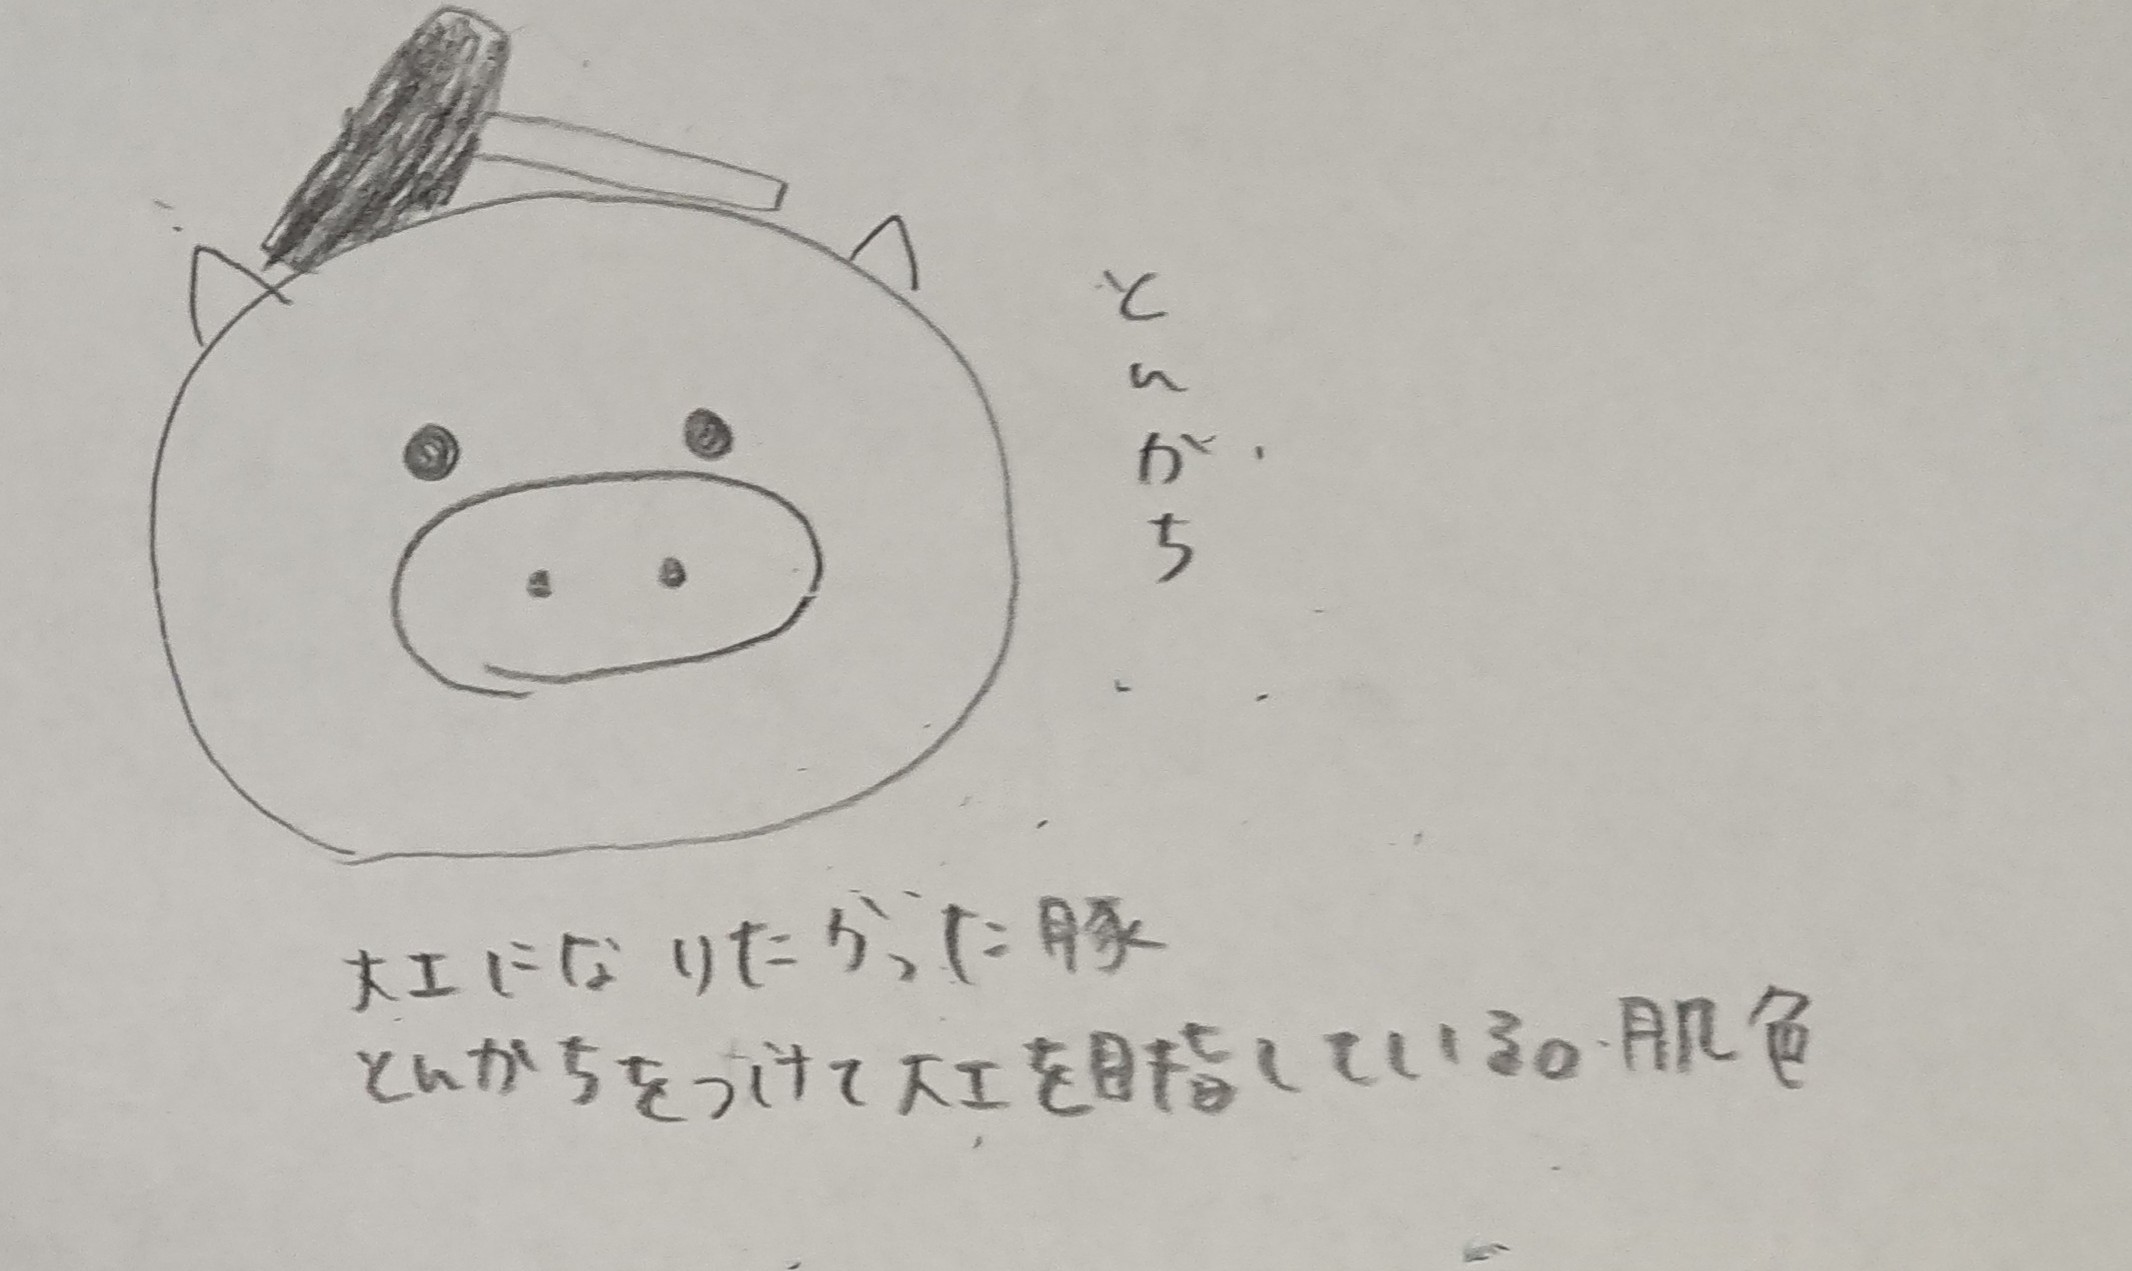 とんがち
大工になりたがった豚
とんがちをつけて大工を目指している。肌色